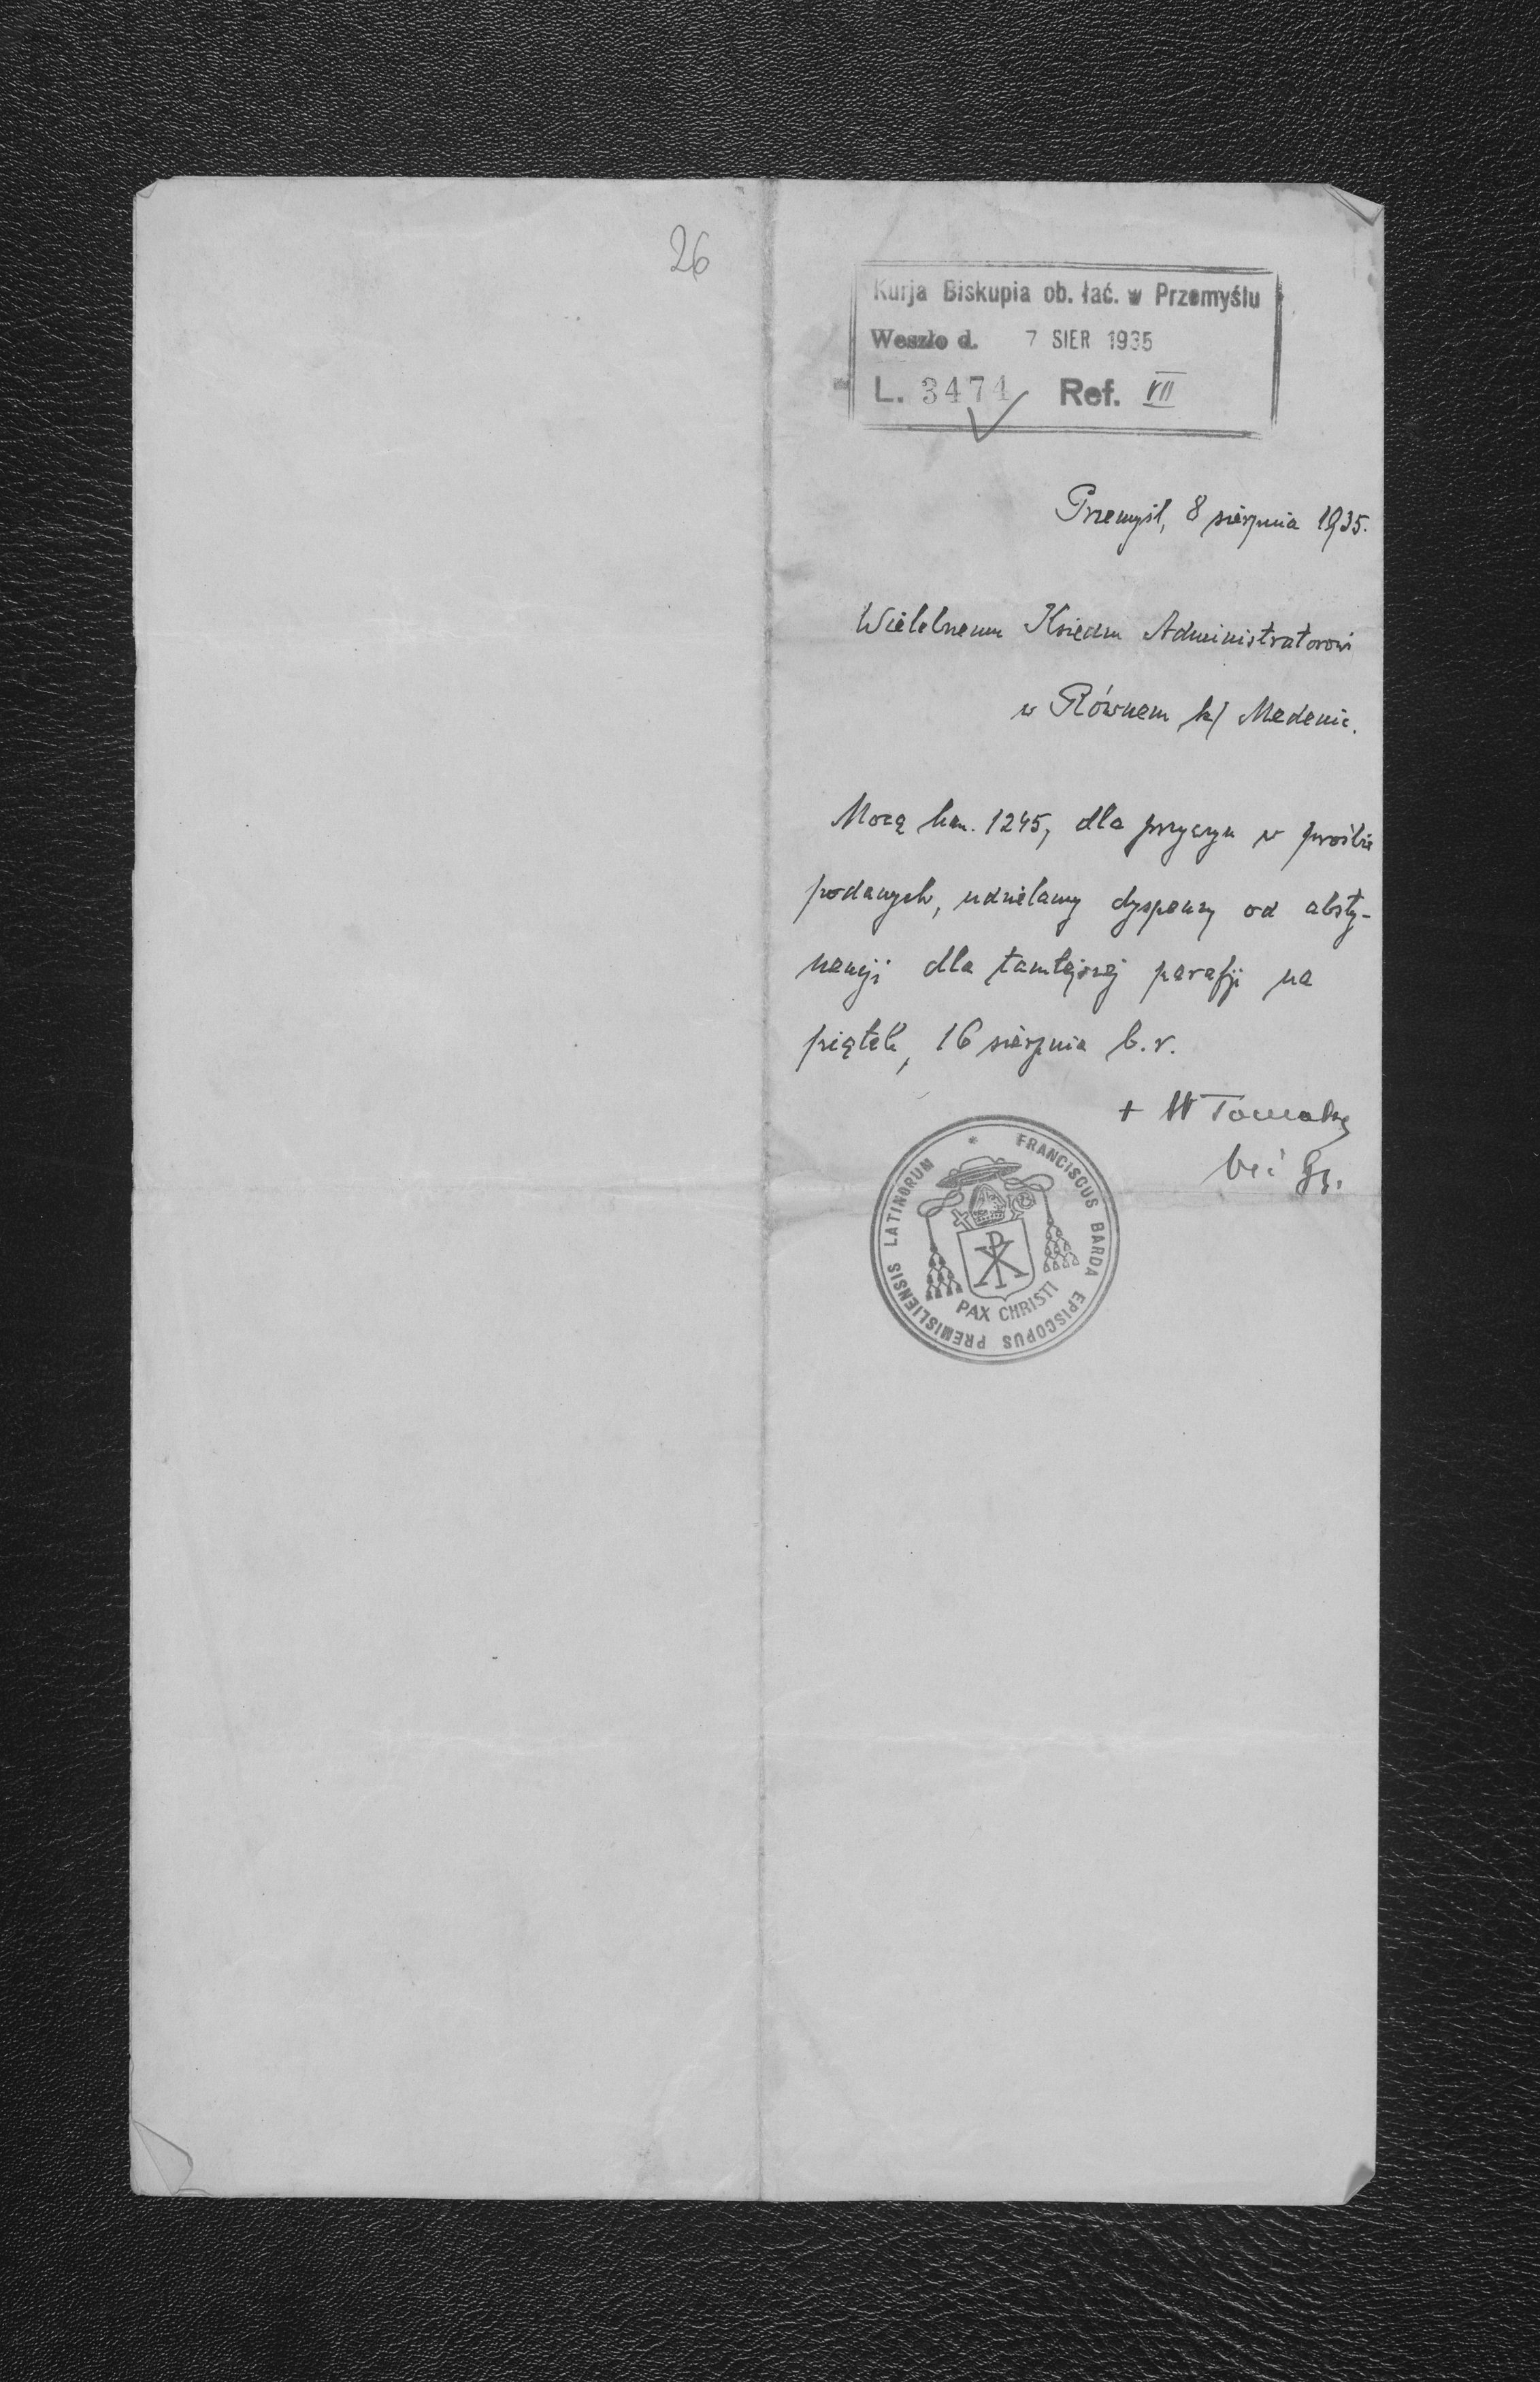 26
Kurja Biskupia ob. łać. w Przemyślu
Weszło d. 7 SIER 1935
L. 3471 Ref. VII
Przemyśl, 8 sierpnia 1935.
Wielebnemu Księdzu Administratorowi
w Równem k/ Medenic.
Mocą kan. 1245, dla przyczyn w prośbie
podanych, udzielamy dyspensy od absty-
nencji dla tamtejszej parafji na
piątek, 16 sierpnia b.r.
+ W Tomaka
FRANCISCUS BARDA EPISCOPUS PREMISLIENSIS LATINORUM
PAX CHRISTI